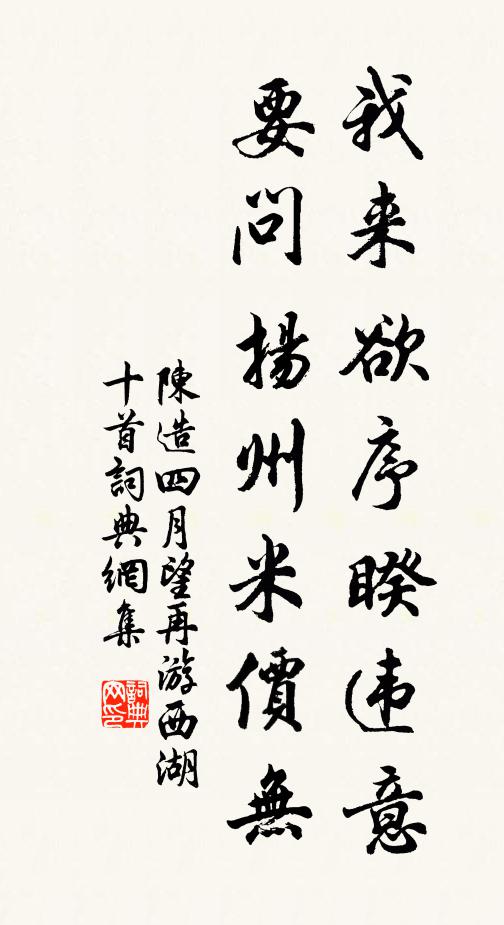 我来欲序暌违意
要問揚州米價無
陳造四月望再游西湖
十首詞典網集
詞典网印